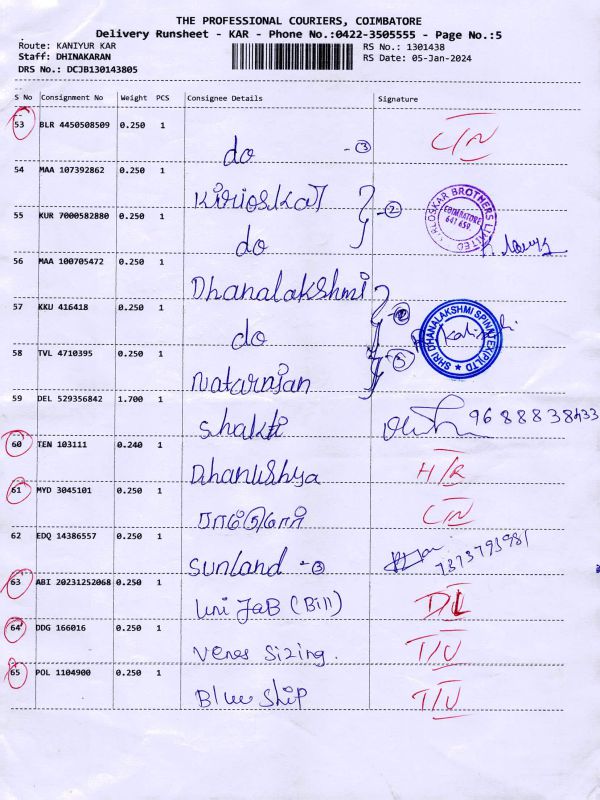 THE PROFESSIONAL COURIERS, COIMBATORE
Delivery Runsheet - KAR - Phone No.:0422-3505555 - Page No.:5
Route: KANIYUR KAR RS No.: 1301438
Staff: DHINAKARAN RS Date: 05-Jan-2024
DRS No.: DCJB130143805
S No Consignment No Weight PCS Consignee Details Signature
53 BLR 4450508509 0.250 1 do - 3
54 MAA 107392862 0.250 1 Kirloskar 2
55 KUR 7000582880 0.250 1 do
KIRLOSKAR BROTHERS LIMITED
COIMBATORE
641 659
56 MAA 100705472 0.250 1 Dhanalakshmi
57 KKU 416418 0.250 1 do
SHRI DHANALAKSHMI SPINTEX (P) LTD
58 TVL 4710395 0.250 1 Natarajan
59 DEL 529356842 1.700 1 Shakti
60 TEN 103111 0.240 1 Dhanushya H/R
61 MYD 3045101 0.250 1
62 EDQ 14386557 0.250 1 Sunland - 3 7373793981
63 ABI 20231252068 0.250 1 Uni JaB (Bill) DL
64 DDG 166016 0.250 1 Venes Sizing. T/U
65 POL 1104900 0.250 1 Blue Ship T/U